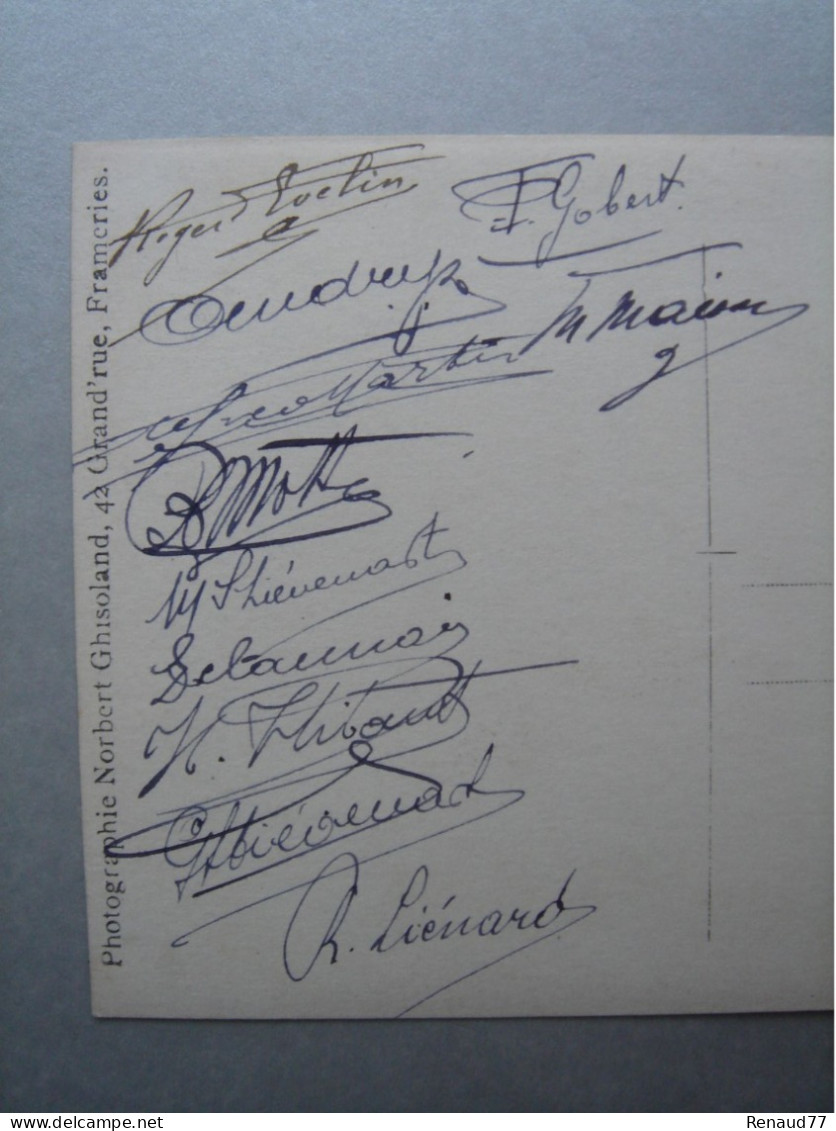 Photographie Norbert Ghisoland, 42 Grand'rue, Frameries.
Roger Evelin
F. Gobert.
Martin
Motte
M Thiévenart
Delaunois
H. Thibaut
G Thiévenart
R. Liénard
delcampe.net
Renaud77